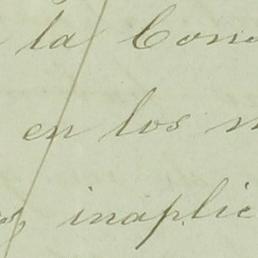 la Con
en los
inaplic